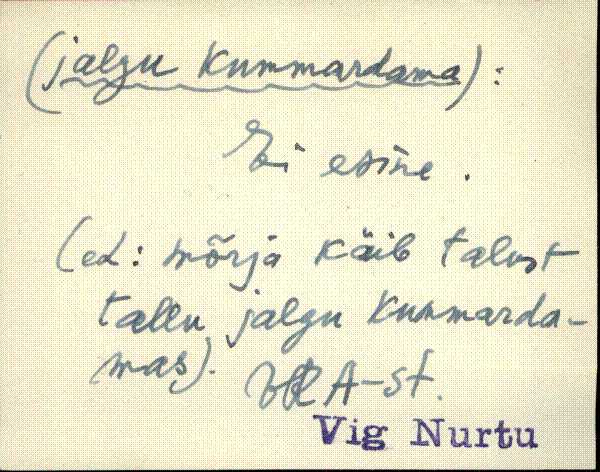 (jalgu kummardama):
Ei esine.
(ed: mõrja käib talust
tallu jalgu kummarda-
mas). A-st.
Vig Nurtu